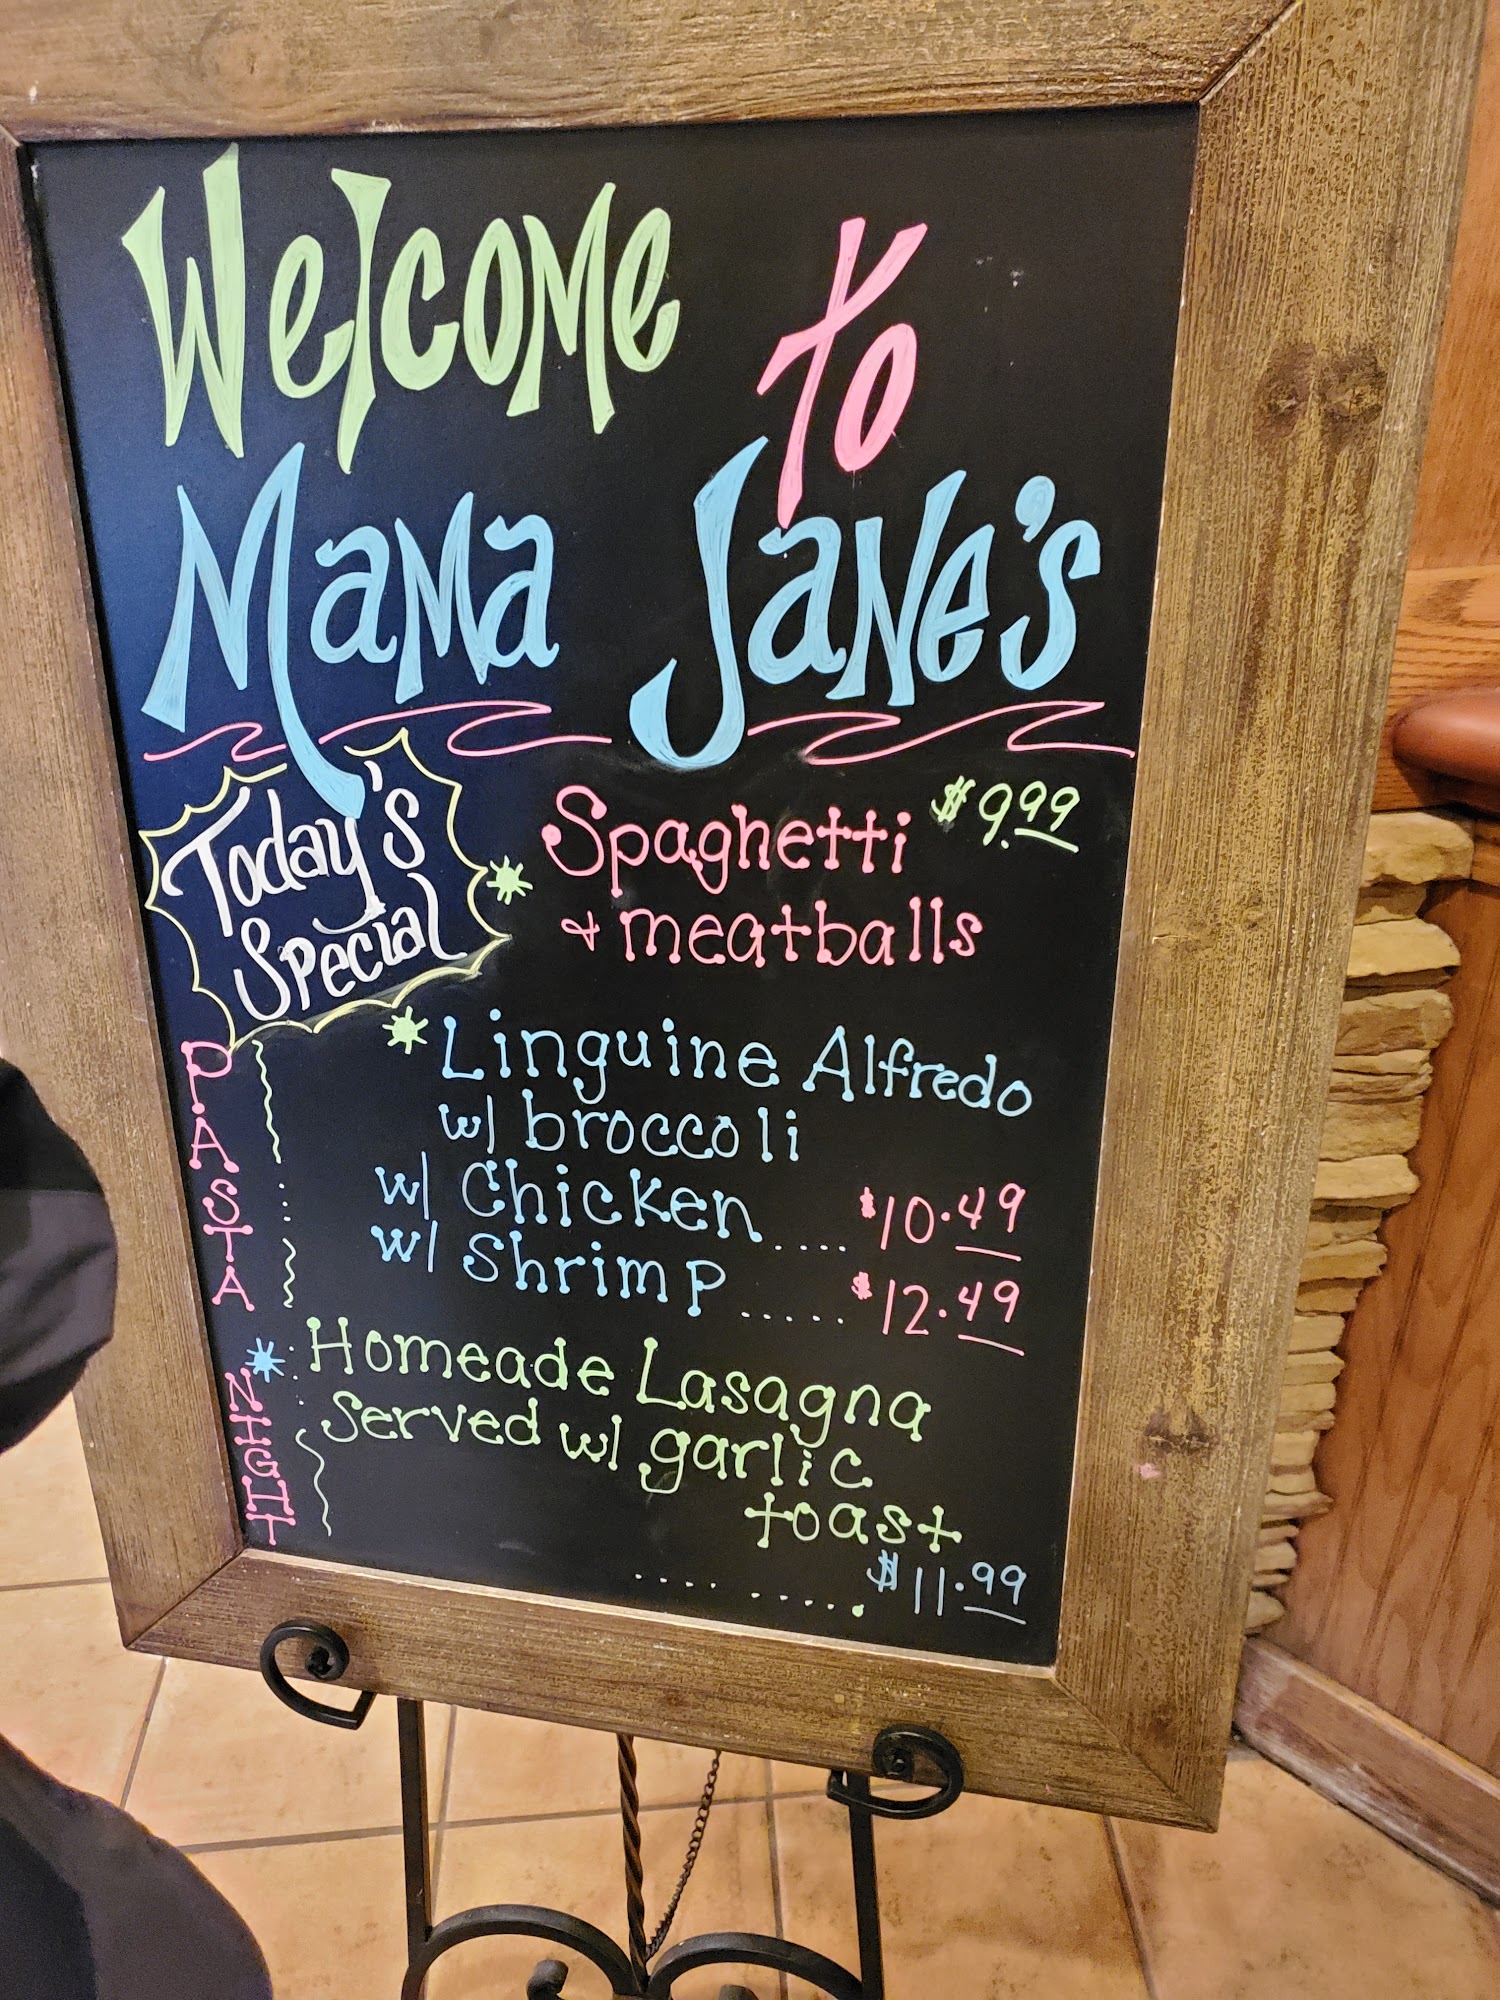 Welcome to
Mama Jane's
Today's
Special
Spaghetti $9.99
& meatballs
Linguine Alfredo
w/ broccoli
w/ Chicken..... $10.49
w/ Shrimp...... $12.49
Homeade Lasagna
Served w/ garlic
toast
.... ..... $11.99
PASTA
NIGHT